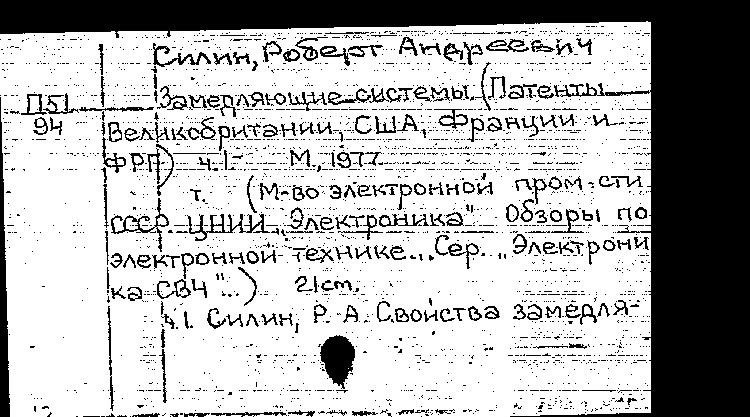 Силин, Роберт Андреевич
П51
94
Замедляющие системы (Патенты
Великобритании, США, Франции и
ФРГ) ч.1- М., 1977
т. (М-во электронной пром-сти
СССР. ЦНИИ „Электроника" Обзоры по
электронной технике... Сер. „Электрони
ка СВЧ"...) 21 cm.
ч.1. Силин, Р. А. Свойства замедля-